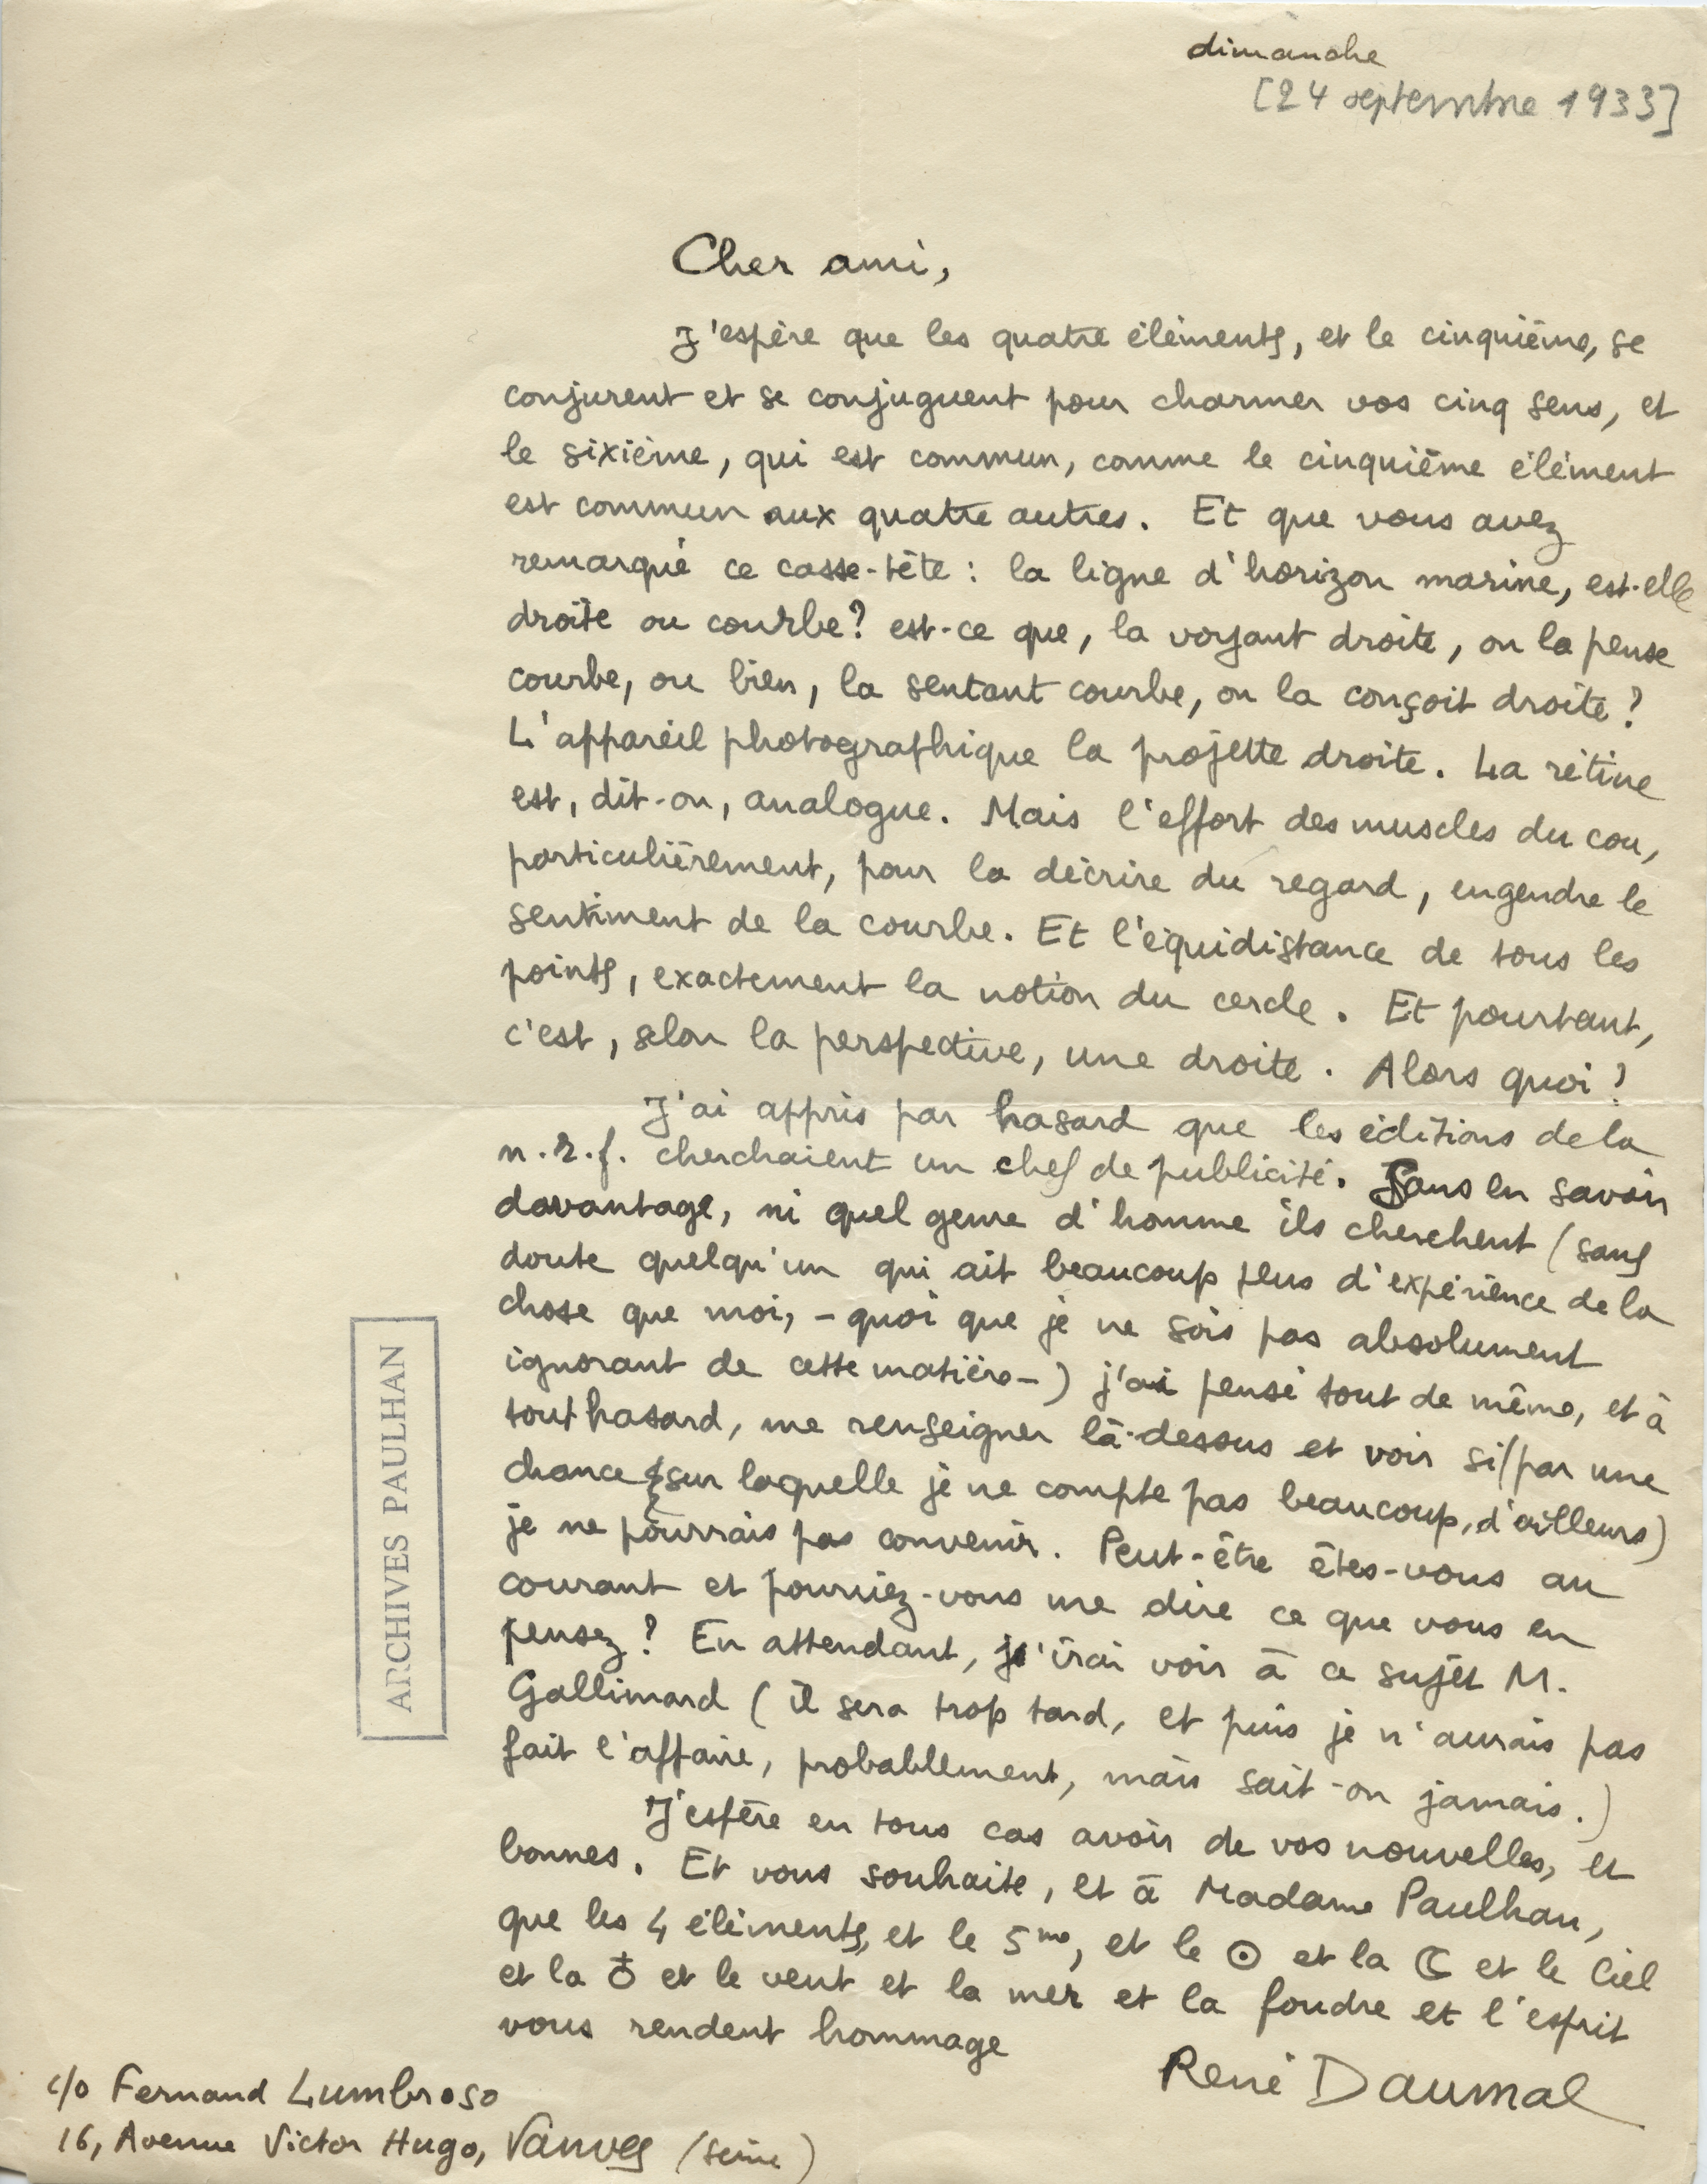 dimanche
[24 septembre 1933]
Cher ami,
J'espère que les quatre éléments, et le cinquième, se
conjurent et se conjuguent pour charmer vos cinq sens, et
le sixième, qui est commun, comme le cinquième élément
est commun aux quatre autres. Et que vous avez
remarqué ce casse-tête : la ligne d'horizon marine, est-elle
droite ou courbe? est-ce que, la voyant droite, on la pense
courbe, ou bien, la sentant courbe, on la conçoit droite ?
L'appareil photographique la projette droite. La rétine
est, dit-on, analogue. Mais l'effort des muscles du cou,
particulièrement, pour la décrire du regard, engendre le
sentiment de la courbe. Et l'équidistance de tous les
points, exactement la notion du cercle. Et pourtant,
c'est, selon la perspective, une droite. Alors quoi ?
J'ai appris par hasard que les éditions de la
n.r.f. cherchaient un chef de publicité. Sans en savoir
davantage, ni quel genre d'homme ils cherchent (sans
doute quelqu'un qui ait beaucoup plus d'expérience de la
chose que moi, - quoi que je ne sois pas absolument
ignorant de cette matière -) j'ai pensé tout de même, et à
tout hasard, me renseigner là-dessus et voir si (par une
chance sur laquelle je ne compte pas beaucoup, d'ailleurs)
je ne pourrais pas convenir. Peut-être êtes-vous au
courant et pourriez-vous me dire ce que vous en
pensez ? En attendant, j'irai voir à ce sujet M.
Gallimard (il sera trop tard, et puis je n'aurais pas
fait l'affaire, probablement, mais sait-on jamais.)
J'espère en tous cas avoir de vos nouvelles, et
bonnes. Et vous souhaite, et à Madame Paulhan,
que les 4 éléments, et le 5me, et le ☉ et la ☾ et le Ciel
et la ♁ et le vent et la mer et la foudre et l'esprit
vous rendent hommage
René Daumal
c/o Fernand Lumbroso
16, Avenue Victor Hugo, Vanves (Seine)
ARCHIVES PAULHAN